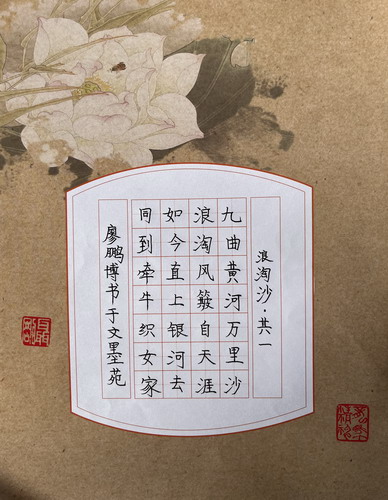 浪淘沙·其一
九曲黄河万里沙
浪淘风簸自天涯
如今直上银河去
同到牵牛织女家
廖鹏博书于文墨苑